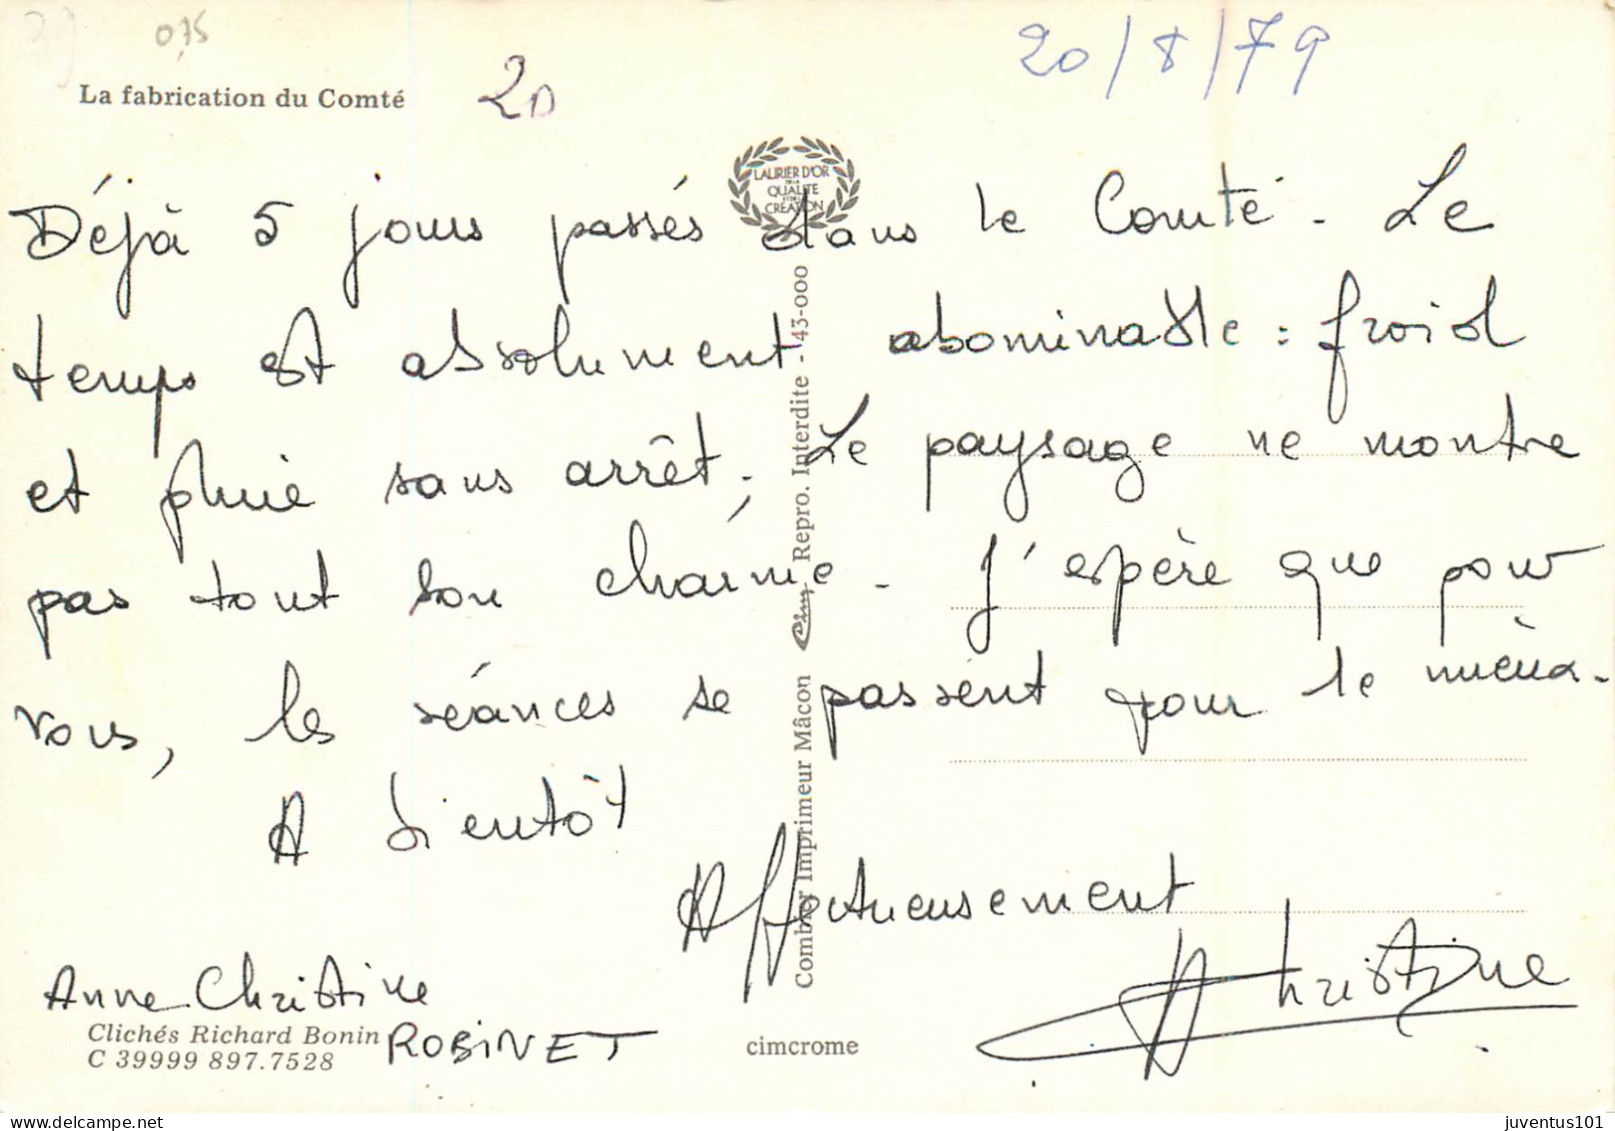 075
20/8/79
La fabrication du Comté
20
LAURIER D'OR
DE LA
QUALITE
ET DE LA
CREATION
Déjà 5 jours passés dans le Comté - Le
temps est absolument abominable : froid
et pluie sans arrêt ; Le paysage ne montre
pas tout son charme - J'espère que pour
vous, les séances se passent pour le mieux.
A bientôt
Affectueusement
AChristine
Anne-Christine
ROBINET
Clichés Richard Bonin
C 39999 897.7528
Combier Imprimeur Mâcon Cim Repro. Interdite - 43-000
cimcrome
juventus101